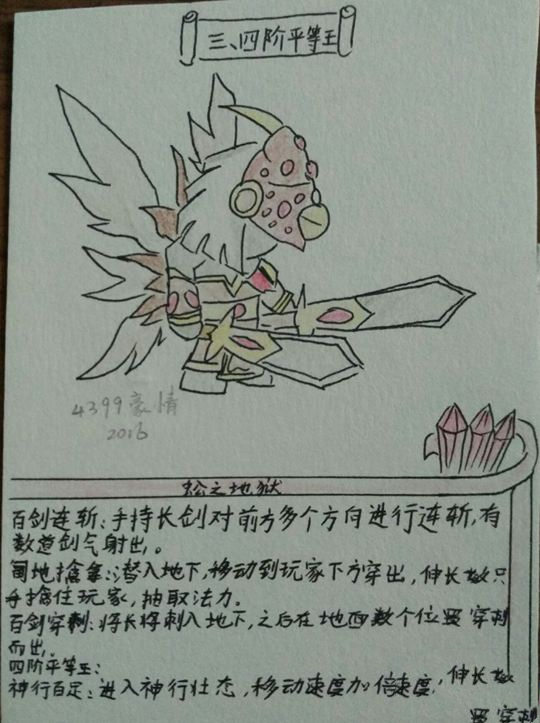 三、四阶平等王
4399豪情
2016
蚣之地狱
百剑连斩:手持长剑对前方多个方向进行连斩,有
数道剑气射出。
地擒拿:潜入地下,移动到玩家下方穿出,伸长数只
手擒住玩家,抽取法力。
百剑穿刺:将长将刺入地下,之后在地面数个位置穿刺
而出。
四阶平等王:
神行百足:进入神行壮态,移动速度加倍速度,伸长数